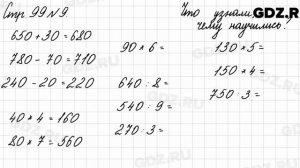 Стр 99 № 9.
Что узнали,
чему научились?
GDZ.RU
650 + 30 = 680
780 - 70 = 710
240 - 20 = 220
40 * 4 = 160
80 * 7 = 560
90 * 6 =
640 : 8 =
540 : 9 =
270 : 3 =
130 * 5 =
150 * 4 =
750 : 3 =